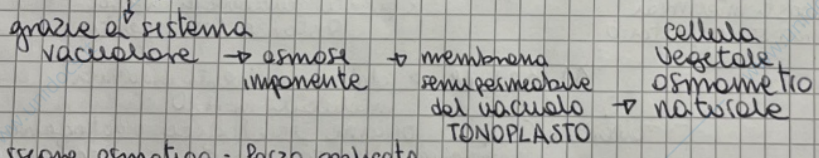 grazie a sistema
vacuolare → osmosi imponente → membrana semipermeabile del vacuolo TONOPLASTO → cellula vegetale, osmometro naturale
osmotica = Forza